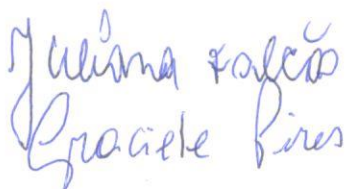 Juliana Falcão
Graciele Pires